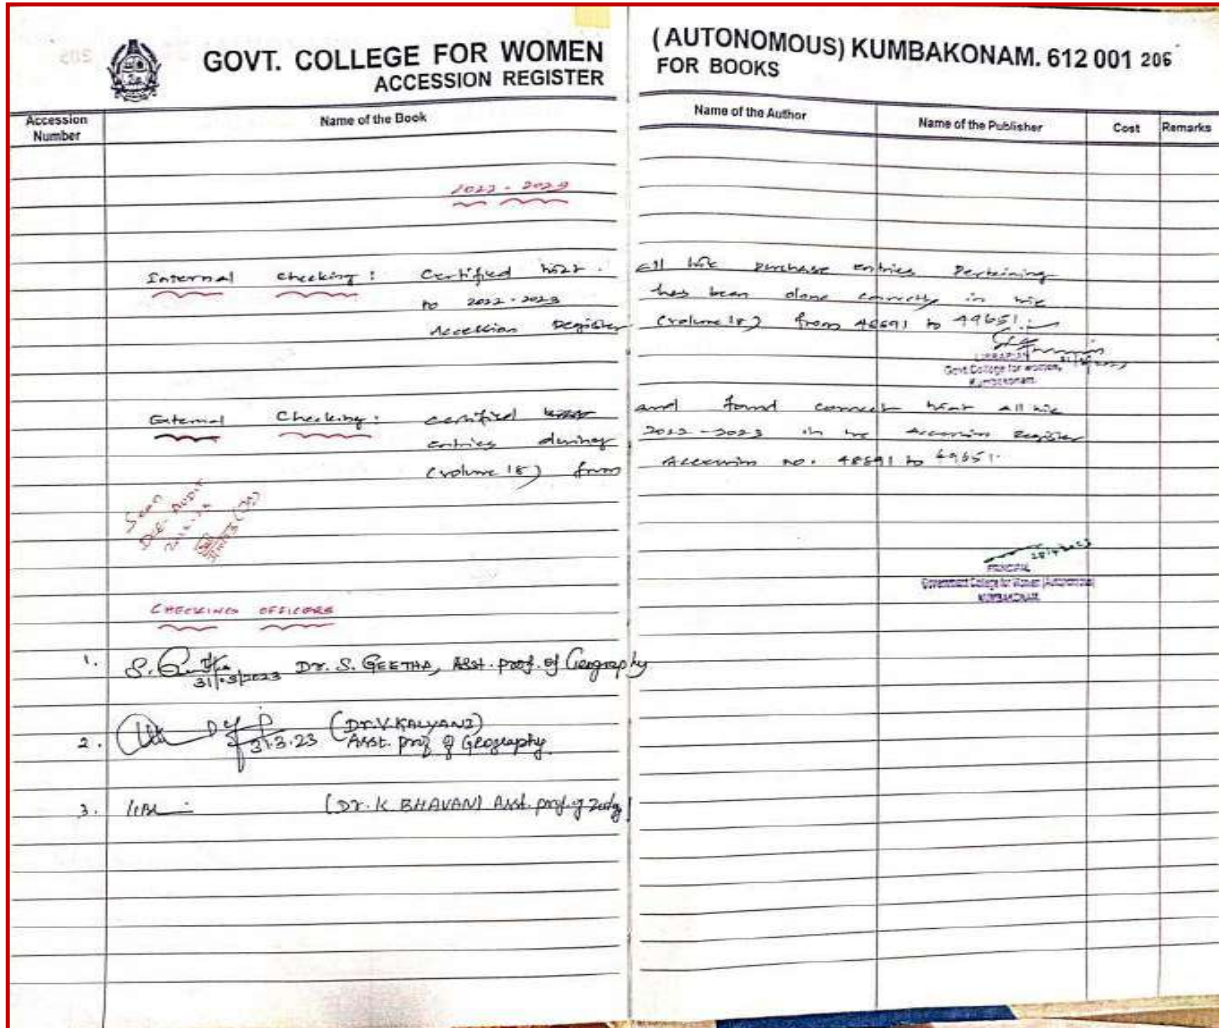 GOVT. COLLEGE FOR WOMEN (AUTONOMOUS) KUMBAKONAM. 612 001 206
ACCESSION REGISTER FOR BOOKS
Accession Number Name of the Book Name of the Author Name of the Publisher Cost Remarks
2022 - 2023
Internal checking: Certified that all the purchase entries Pertaining
to 2022-2023 has been done correctly in the
Accession Register (volume 18) from 48691 to 49651.
LIBRARIAN
Govt. College for women,
Kumbakonam.
External Checking: certified and found correct that all the
entries during 2022-2023 in the Accession Register
(volume 18) from Accession no. 48691 to 49651.
PRINCIPAL
Government College for Women (Autonomous)
KUMBAKONAM.
CHECKING OFFICERS
1. S. Geetha 31/03/2023 DR. S. GEETHA, Asst. prof. of Geography
2. 31.3.23 (DR.V.KALYANI)
Asst. prof of Geography
3. (DR. K. BHAVANI Asst. prof. of